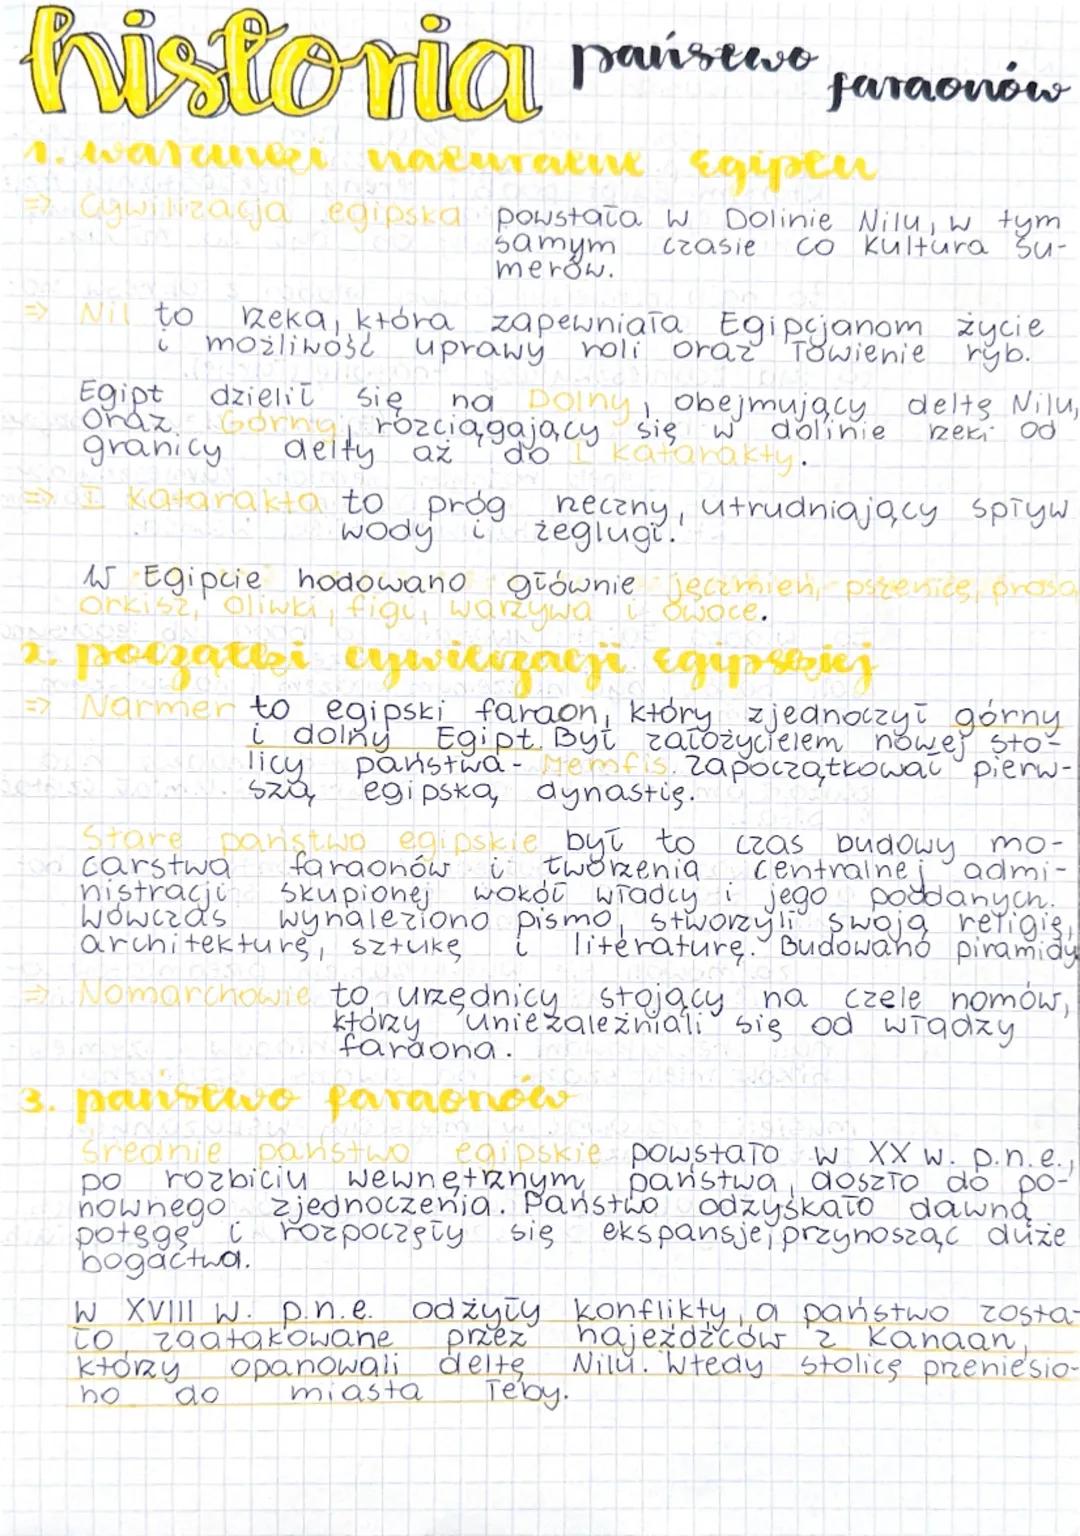 historia państwo faraonów
1. warunki naturalne Egiptu
=> Cywilizacja egipska powstała w Dolinie Nilu, w tym
samym czasie co kultura Su-
merów.
=> Nil to rzeka, która zapewniała Egipcjanom życie
i możliwość uprawy roli oraz łowienie ryb.
Egipt dzielił się na Dolny, obejmujący deltę Nilu,
oraz Górny, rozciągający się w dolinie rzeki od
granicy delty aż do I katarakty.
=> I katarakta to próg rzeczny, utrudniający spływ
wody i żeglugi.
W Egipcie hodowano głównie jęczmień, pszenicę, proso,
orkisz, oliwki, figi, warzywa i owoce.
2. początki cywilizacji egipskiej
=> Narmer to egipski faraon, który zjednoczył górny
i dolny Egipt. Był założycielem nowej sto-
licy państwa - Memfis. Zapoczątkował pierw-
szą egipską dynastię.
Stare państwo egipskie był to czas budowy mo-
carstwa faraonów i tworzenia centralnej admi-
nistracji skupionej wokół władcy i jego poddanych.
Wówczas wynaleziono pismo, stworzyli swoją religię,
architekturę, sztukę i literaturę. Budowano piramidy
=> Nomarchowie to urzędnicy stojący na czele nomów,
którzy uniezależniali się od władzy
faraona.
3. państwo faraonów
Średnie państwo egipskie powstało w XX w. p.n.e.,
po rozbiciu wewnętrznym państwa, doszło do po-
nownego zjednoczenia. Państwo odzyskało dawną
potęgę i rozpoczęły się ekspansje, przynosząc duże
bogactwa.
W XVIII w. p.n.e. odżyły konflikty, a państwo zosta-
ło zaatakowane przez najeźdźców z Kanaan,
którzy opanowali deltę Nilu. Wtedy stolicę przeniesio-
no do miasta Teby.